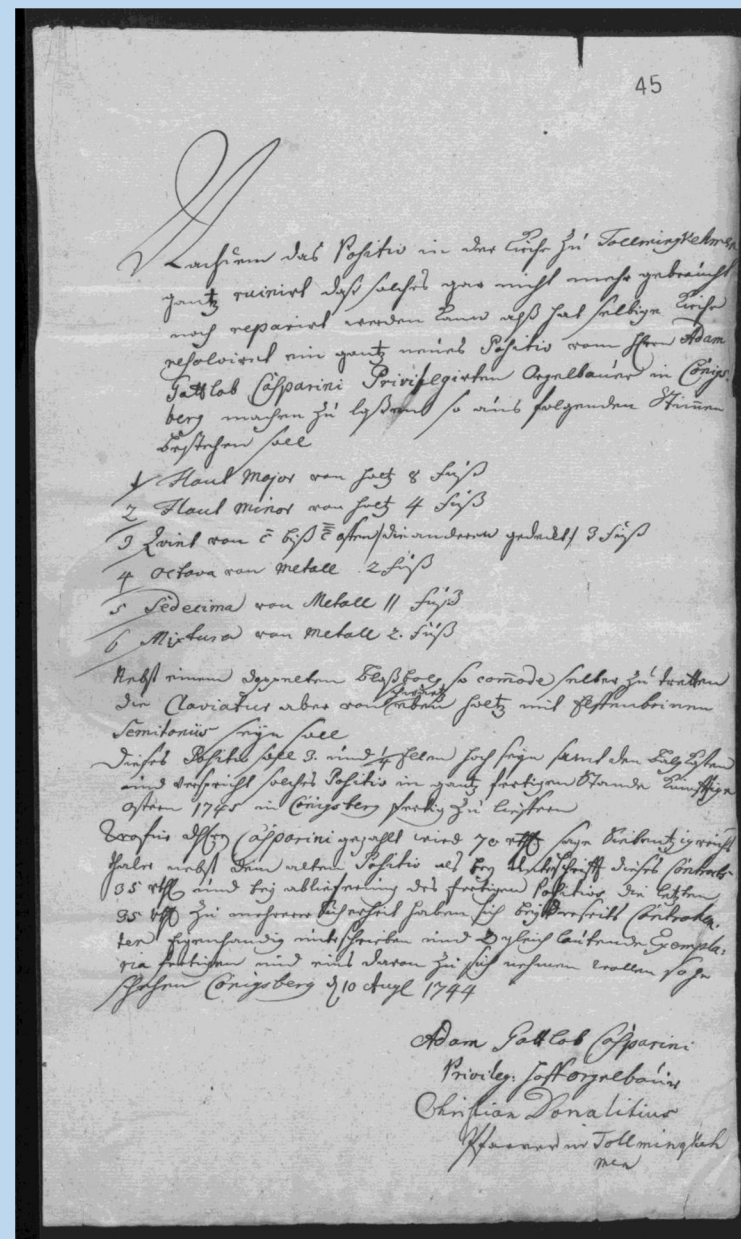 45
Nachdem das Positiv in der Kirche zu Tollmingkehmen
gantz ruinirt daß solches gar nicht mehr gebraucht
noch repariret werden kann alß hat selbige Kirche
resolviret ein gantz neues Positiv vom Herrn Adam
Gottlob Casparini Privilegirten Orgelbauer in Königs-
berg machen zu laßen so aus folgenden Stimen
bestehen soll
1 Flaut Major von holtz 8 Fuß
2 Flaut Minor von holtz 4 Fuß
3 Quint von c̄ biß c̿ offen / die anderen gedeckt / 3 Fuß
4 Octava von Metall 2 Fuß
5 Sedecima von Metall 1 Fuß
6 Mixtura von Metall 2. Fuß
Nebst einem doppelten Blaßbalg so comode selber zu tretten
die Claviatur aber von eben holtz mit Elffenbeinen
Semitoniis seyn soll
Dieses Positiv soll 3. und 1/4 Ellen hoch seyn samt den Balgkasten
und verspricht solches Positiv in gantz fertigen Stande künfftige
Ostern 1745 in Königsberg fertig zu liefern
Wofür Casparini gezahlt wird 70 rthl sage Siebentzig reichs
thaler nebst dem alten Positiv als bey Unterschrifft dieses Contracts
35 rthl und bey ablieferung des fertigen Positivs die letzten
35 rthl Zu mehrerer Sicherheit haben sich beyderseits Contrahen-
ten Eigenhändig unterschrieben und 2 gleich lautende Exempla-
ria fertigen und eins davon zu sich nehmen wollen so ge
schehen Königsberg d 10 Augl 1744
Adam Gottlob Casparini
Privileg: Hoff orgelbauer
Christian Donalitius
Pfarrer in Tollmingkeh
men